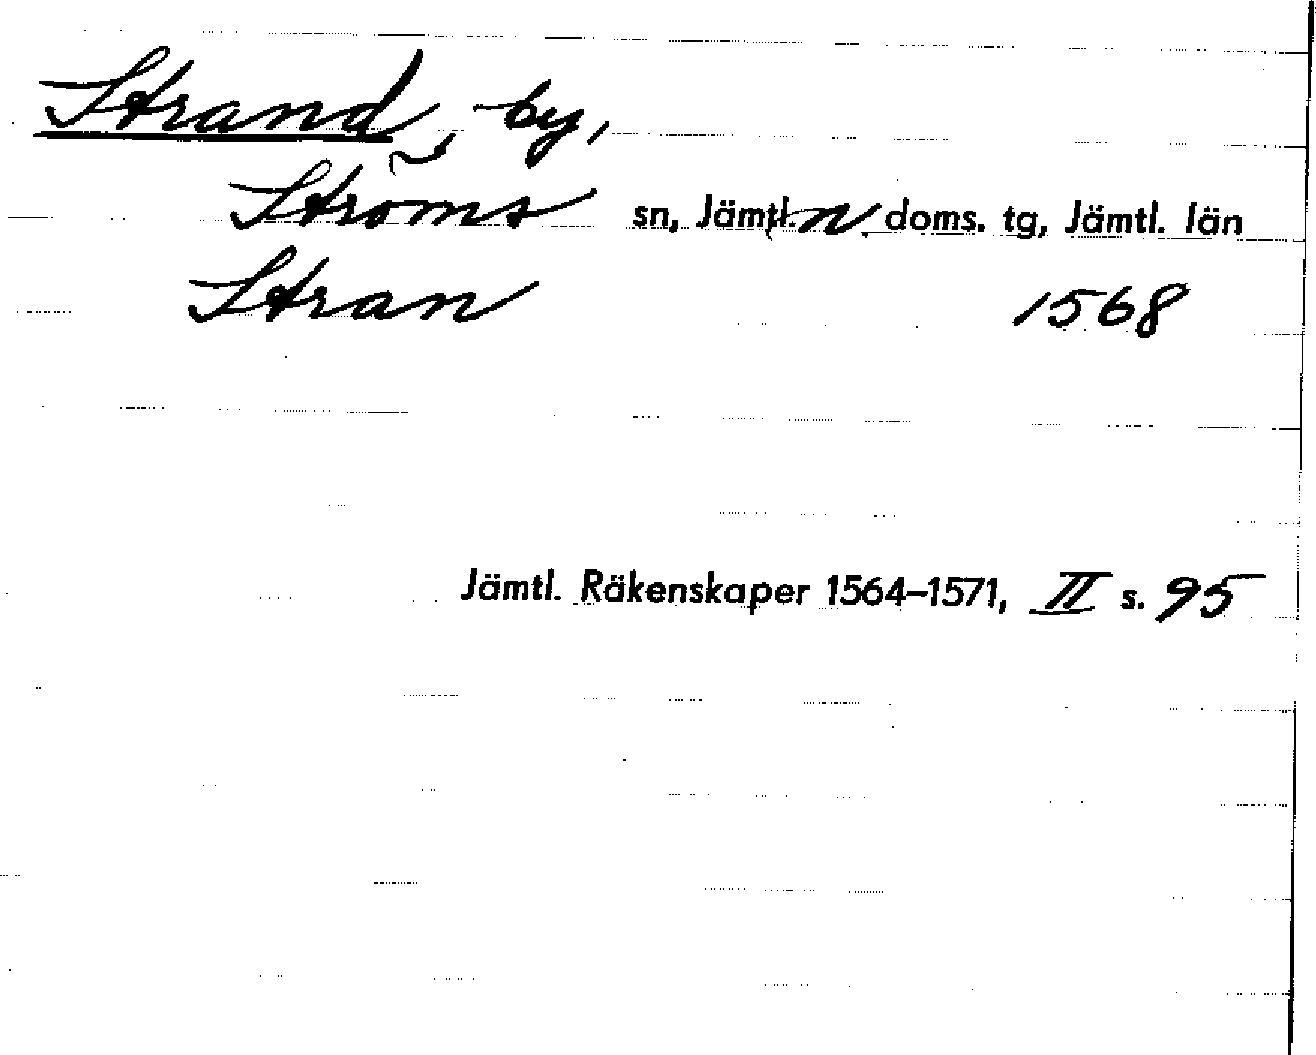 Strand, by,
Ströms sn, Jämtl. n doms. tg, Jämtl. län
Stran 1568
Jämtl. Räkenskaper 1564–1571, II s. 95